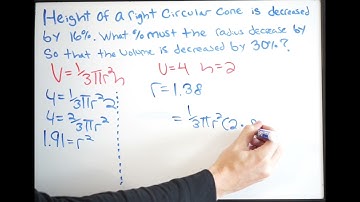 Height of a right Circular Cone is decreased
by 16%. What % must the radius decrease by
So that the Volume is decreased by 30%?
V=⅓πr²h
4=⅓πr²2
4=⅔πr²
1.91=r²
V=4 h=2
r=1.38
=⅓πr²(2·